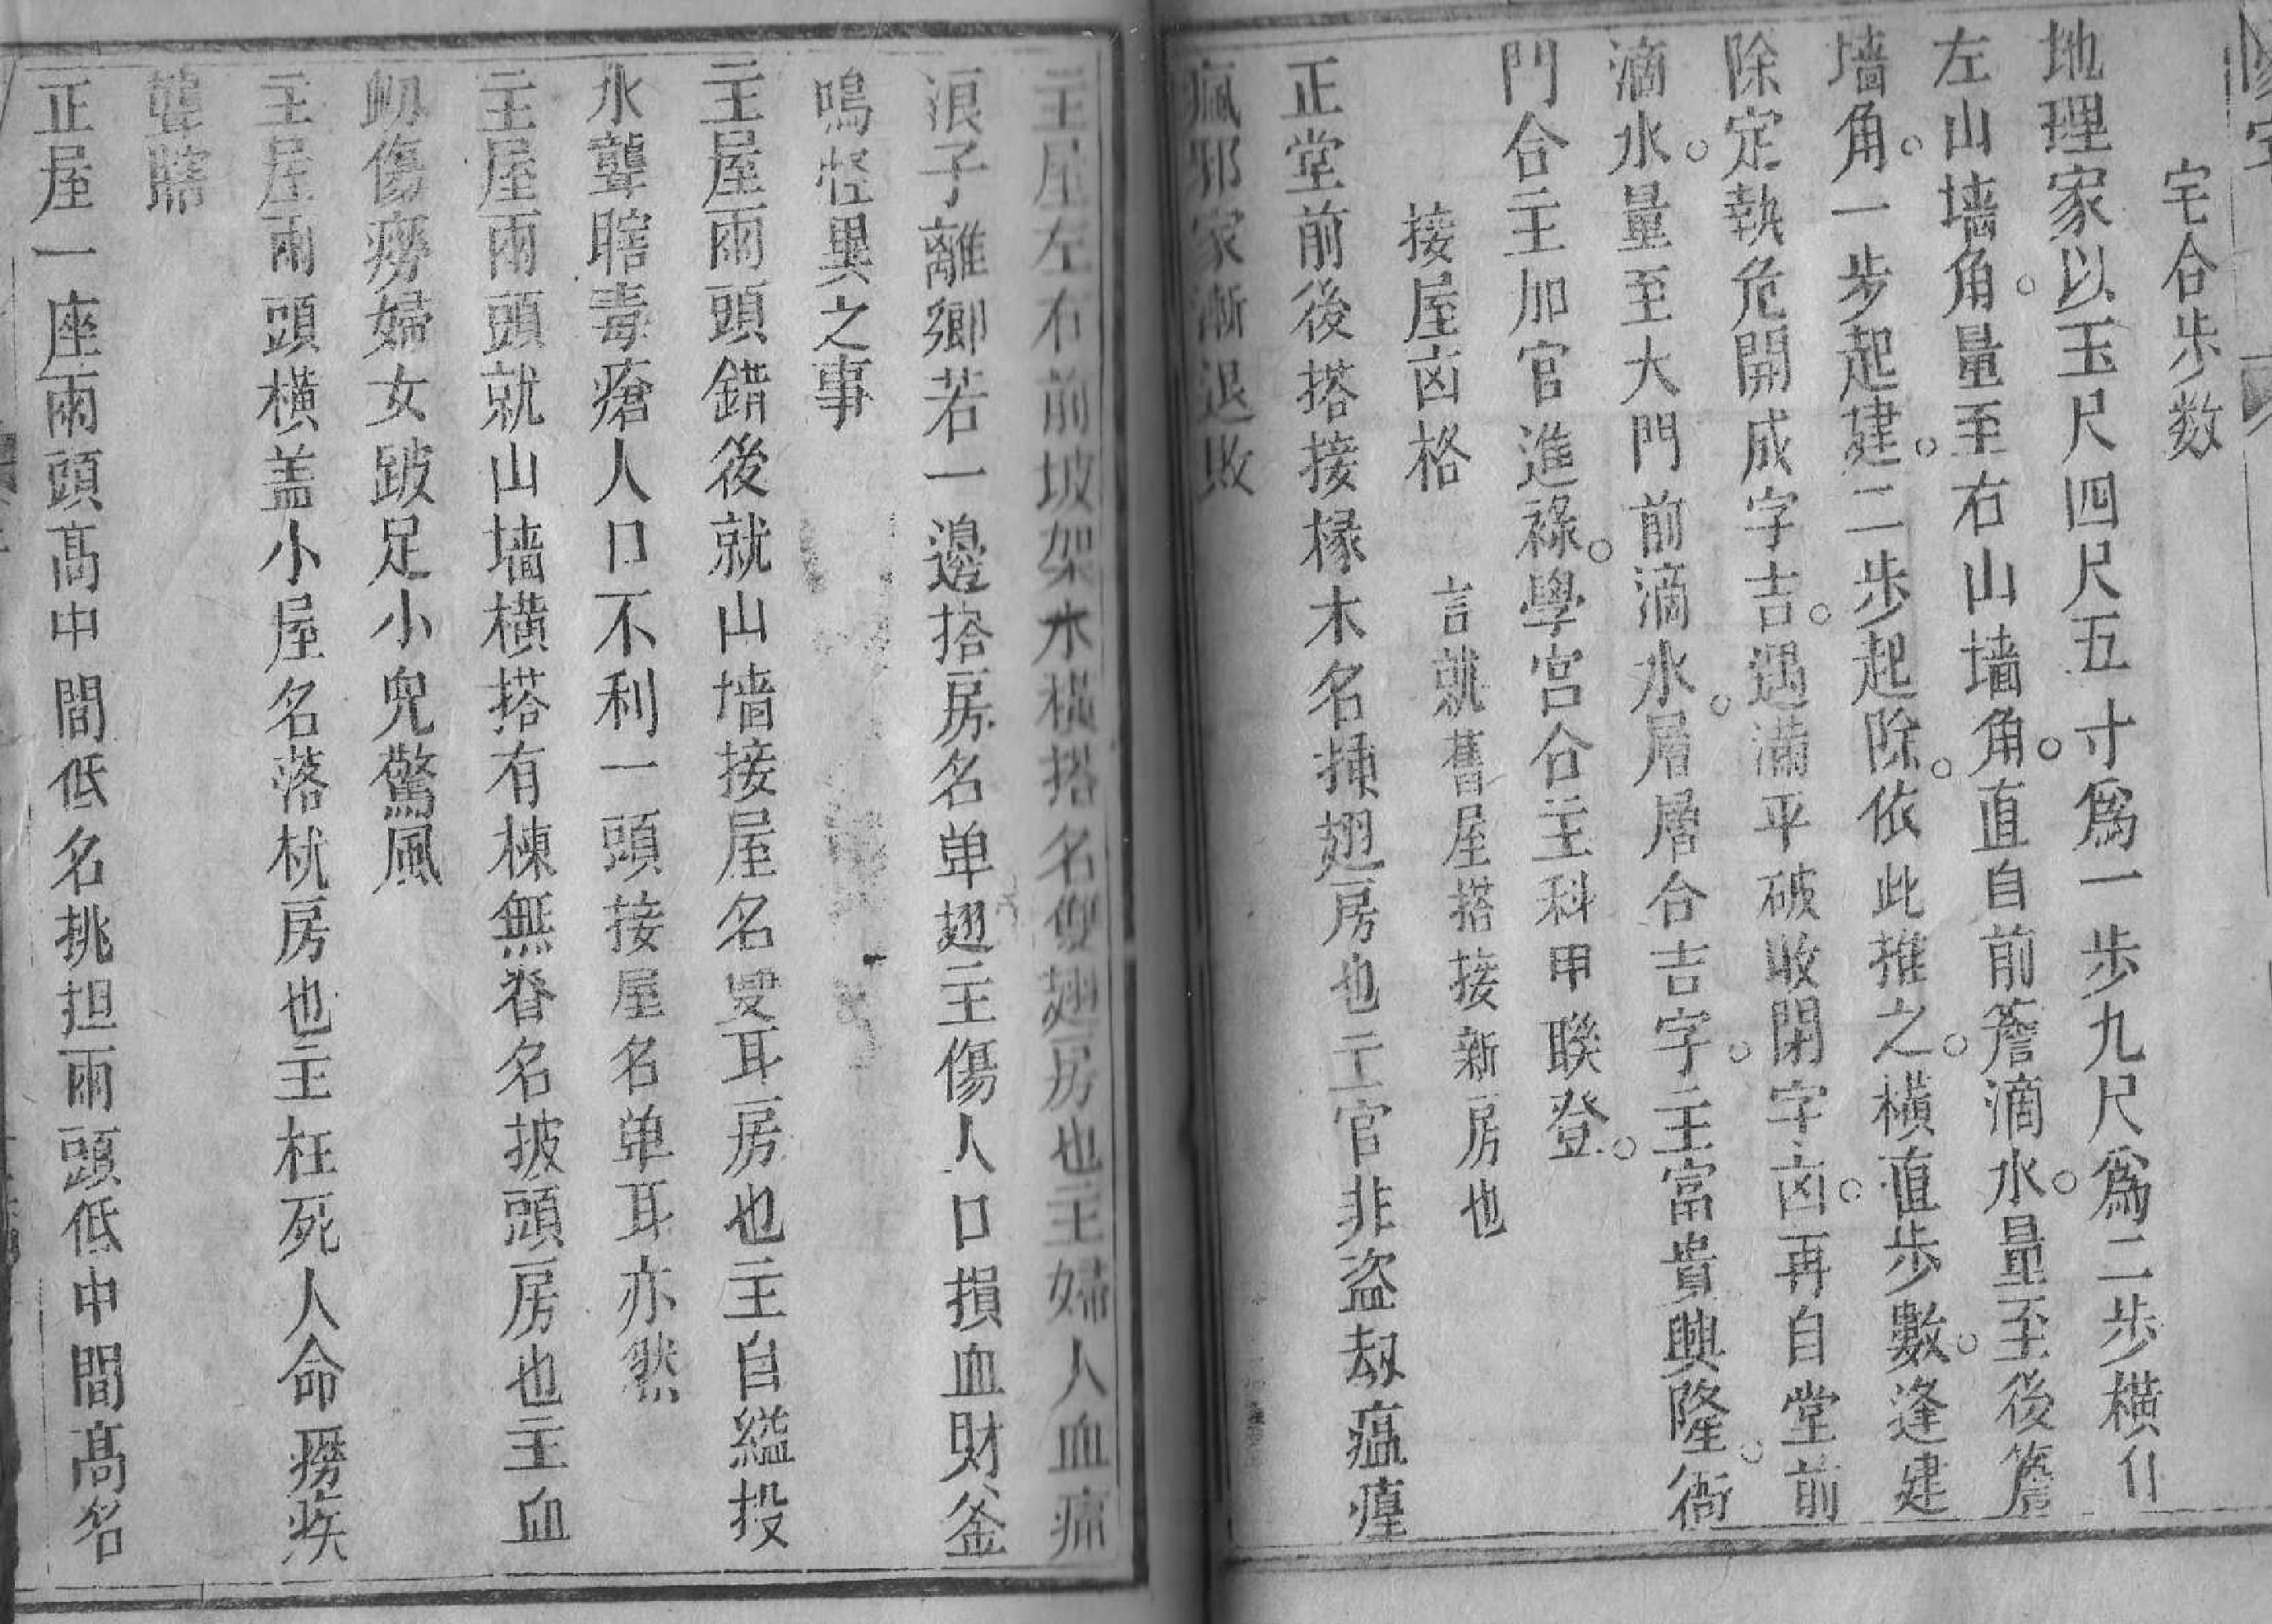 宅合步数
地理家以玉尺四尺五寸爲一步九尺爲二步橫自
左山墙角量至右山墙角直自前簷滴水量至後簷
墙角一步起建二步起除依此推之橫直步數逢建
除定執危開成字吉遇滿平破收閉字凶再自堂前
滴水量至大門前滴水層層合吉字主富貴興隆衙
門合主加官進祿學宮合主科甲聯登
接屋凶格 言就舊屋搭接新房也
正堂前後搭接椽木名揷翅房也主官非盜刼瘟瘽
瘋邪家漸退敗
主屋左右前坡架木橫搭名雙翅房也主婦人血痛
浪子離鄉若一邊搭房名单翅主傷人口損血財釜
鳴怪異之事
主屋兩頭錯後就山墙接屋名雙耳房也主自縊投
水聾瞎毒瘡人口不利一頭接屋名单耳亦然
主屋兩頭就山墙橫搭有棟無脊名披頭房也主血
刼傷癆婦女跛足小兒驚風
主屋兩頭橫盖小屋名落枕房也主枉死人命癆疾
聾瞎
正屋一座兩頭髙中間低名挑担兩頭低中間髙名